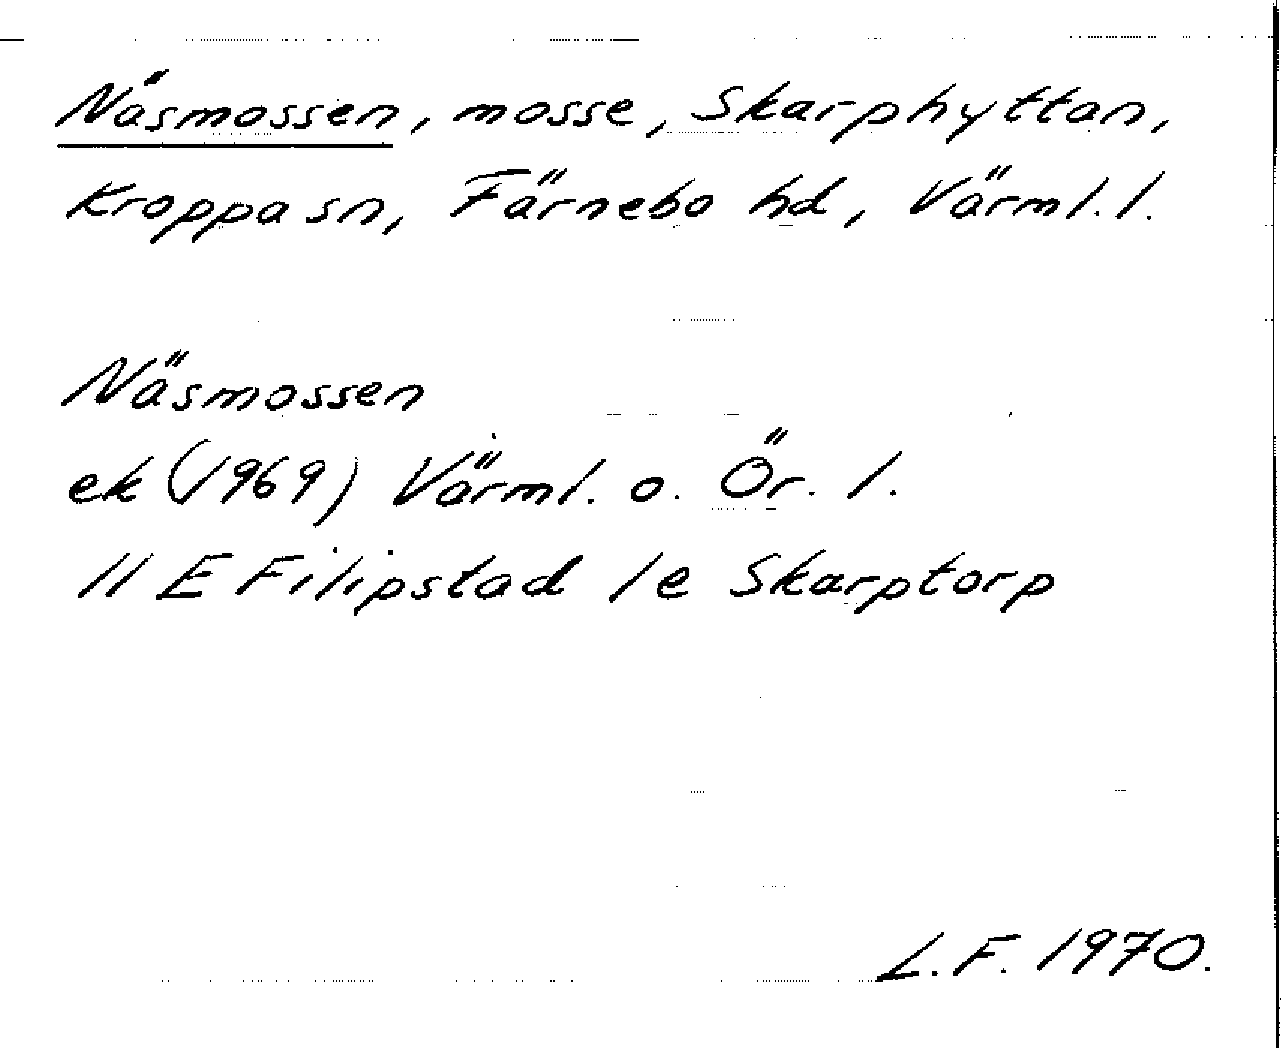 Näsmossen, mosse, Skarphyttan,
Kroppa sn, Färnebo hd, Värml. l.
Näsmossen
ek (1969) Värml. o. Ör. l.
11 E Filipstad 1e Skarptorp
L.F. 1970.